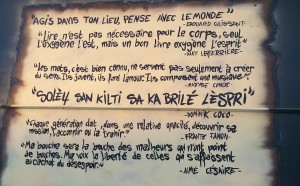 "AGIS DANS TON LIEU, PENSE AVEC LE MONDE"
- EDOUARD GLISSANT -
"Lire n'est pas nécessaire pour le corps, seul
l'oxygène l'est, mais un bon livre oxygène l'esprit"
- GUY LEFEBVRIER -
"les mots, c'est bien connu, ne servent pas seulement à créer
du sens. Ils jouent, ils font l'amour. Ils composent une musique"
- MARYSE CONDÉ -
"SOLÈY SAN KILTI SA KA BRILÉ LESPRI"
- DOMINIK COCO -
"Chaque génération doit, dans une relative opacité, découvrir sa
mission, l'accomplir ou la trahir."
- FRANTZ FANON -
"Ma bouche sera la bouche des malheurs qui n'ont point
de bouches. Ma voix la liberté de celles qui s'affaissent
au cachot du désespoir"
- AIMÉ CÉSAIRE -